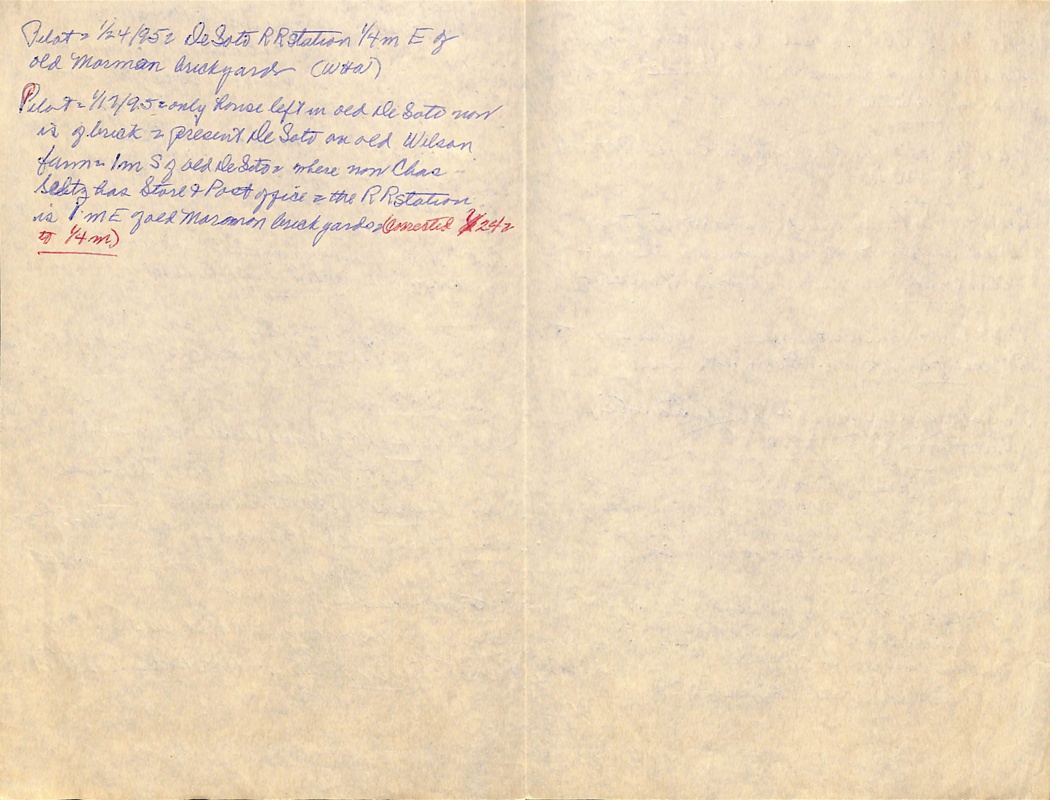 Pilot = 1/24/95 = De Soto RR Station 1/4 m E of
old Mormon brickyards (WHW)
Pilot = 1/17/95 = only house left in old De Soto now
is of brick = present De Soto on old Wilson
farm = 1m S of old De Soto = where now Chas
Seltz has Store & Post office = the RR Station
is 1 m E of old Mormon brickyards = (corrected 1/24 =
to 1/4 m)